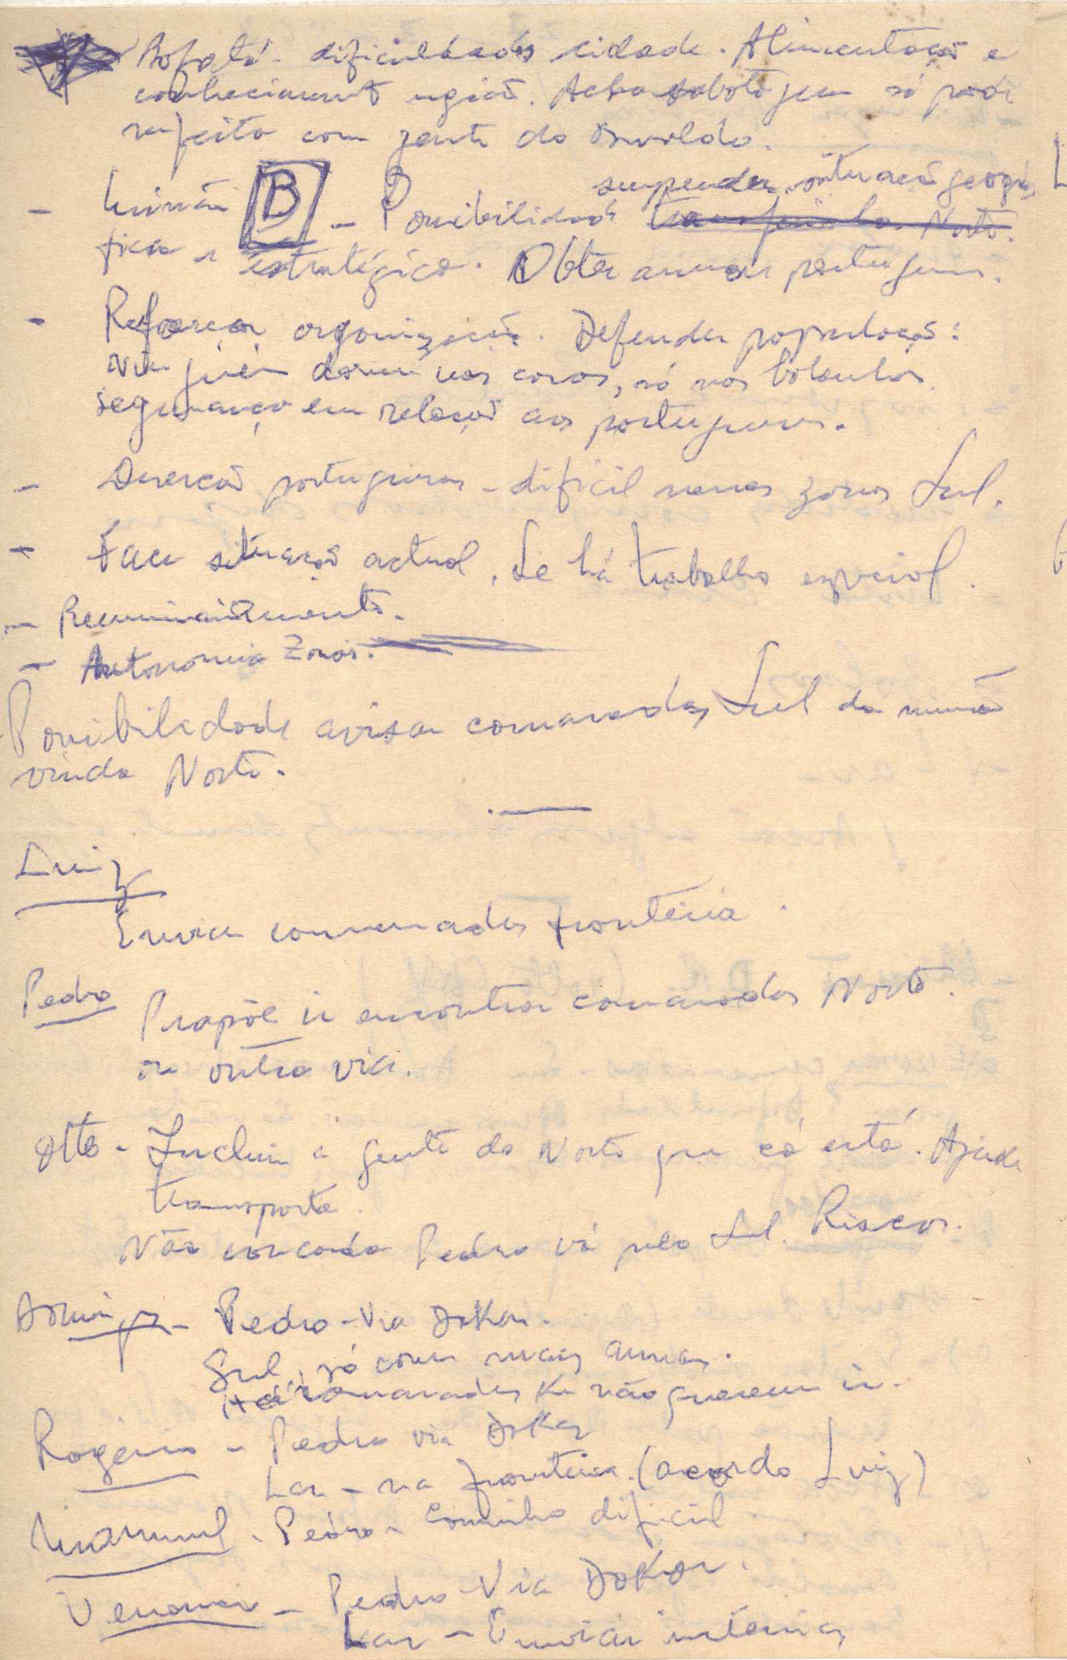 Bofotá - dificuldades cidade. Alimentação e
conhecimento região. Acha sabotagem só pode
ser feita com gente do Osvaldo.
- Guinée B - Possibilidades suspender situação geográ
fica e estratégica. Obter armas portugueses.
- Reforçar organização. Defender população:
Ninguém dorme nas casas, só nos
segurança em relação aos portugueses.
- Deserção portugueses - difícil nessas zonas Sul.
- Face situação actual. Se há trabalho especial.
- Recenseamento.
- Autonomia Zonas.
Possibilidade avisar camaradas Sul da
vinda Norte.
Luiz
Enviar camaradas fronteira.
Pedro Propõe ir encontrar camaradas Norte.
ou outra via.
Otto - Incluir a gente do Norte que cá está. Ajuda
transporte.
Não concorda Pedro vá pelo Sul. Riscos.
Domingos - Pedro - Via Dakar.
Sul, só com mais armas.
Há camaradas ke não querem ir.
Rogério - Pedro via Dakar
Lar - na fronteira. (acordo Luiz)
- Pedro - Caminho difícil.
- Pedro - Via Dakar.
Lar - Enviar